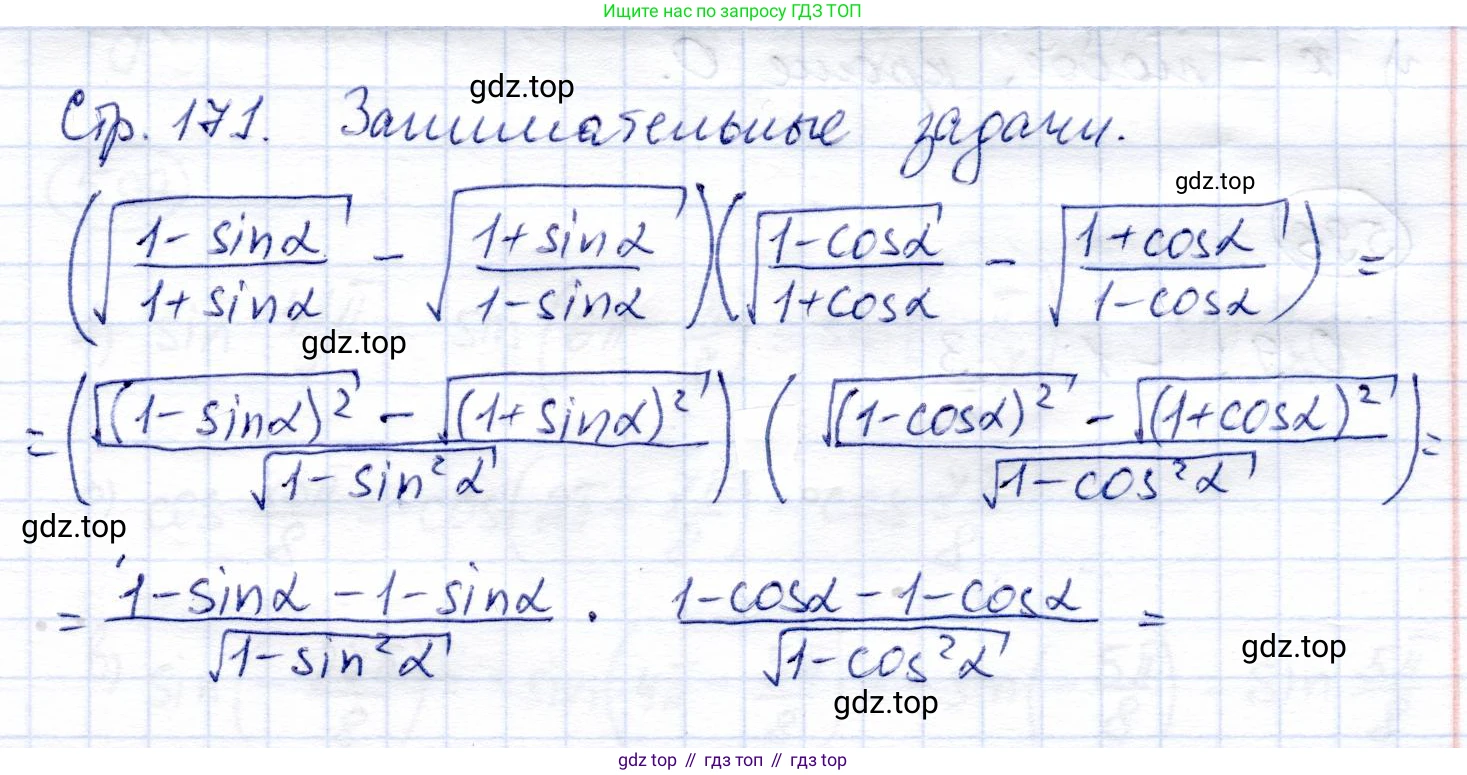 Ищите нас по запросу ГДЗ ТОП
gdz.top
Стр. 171. Занимательные задачи.
gdz.top
(√((1-sinα)/(1+sinα)) - √((1+sinα)/(1-sinα)))(√((1-cosα)/(1+cosα)) - √((1+cosα)/(1-cosα))) =
gdz.top
= ((√(1-sinα)² - √(1+sinα)²)/√(1-sin²α)) ((√(1-cosα)² - √(1+cosα)²)/√(1-cos²α)) =
gdz.top
= (1-sinα-1-sinα)/√(1-sin²α) · (1-cosα-1-cosα)/√(1-cos²α) =
gdz.top
gdz.top
gdz.top // гдз топ // gdz.top